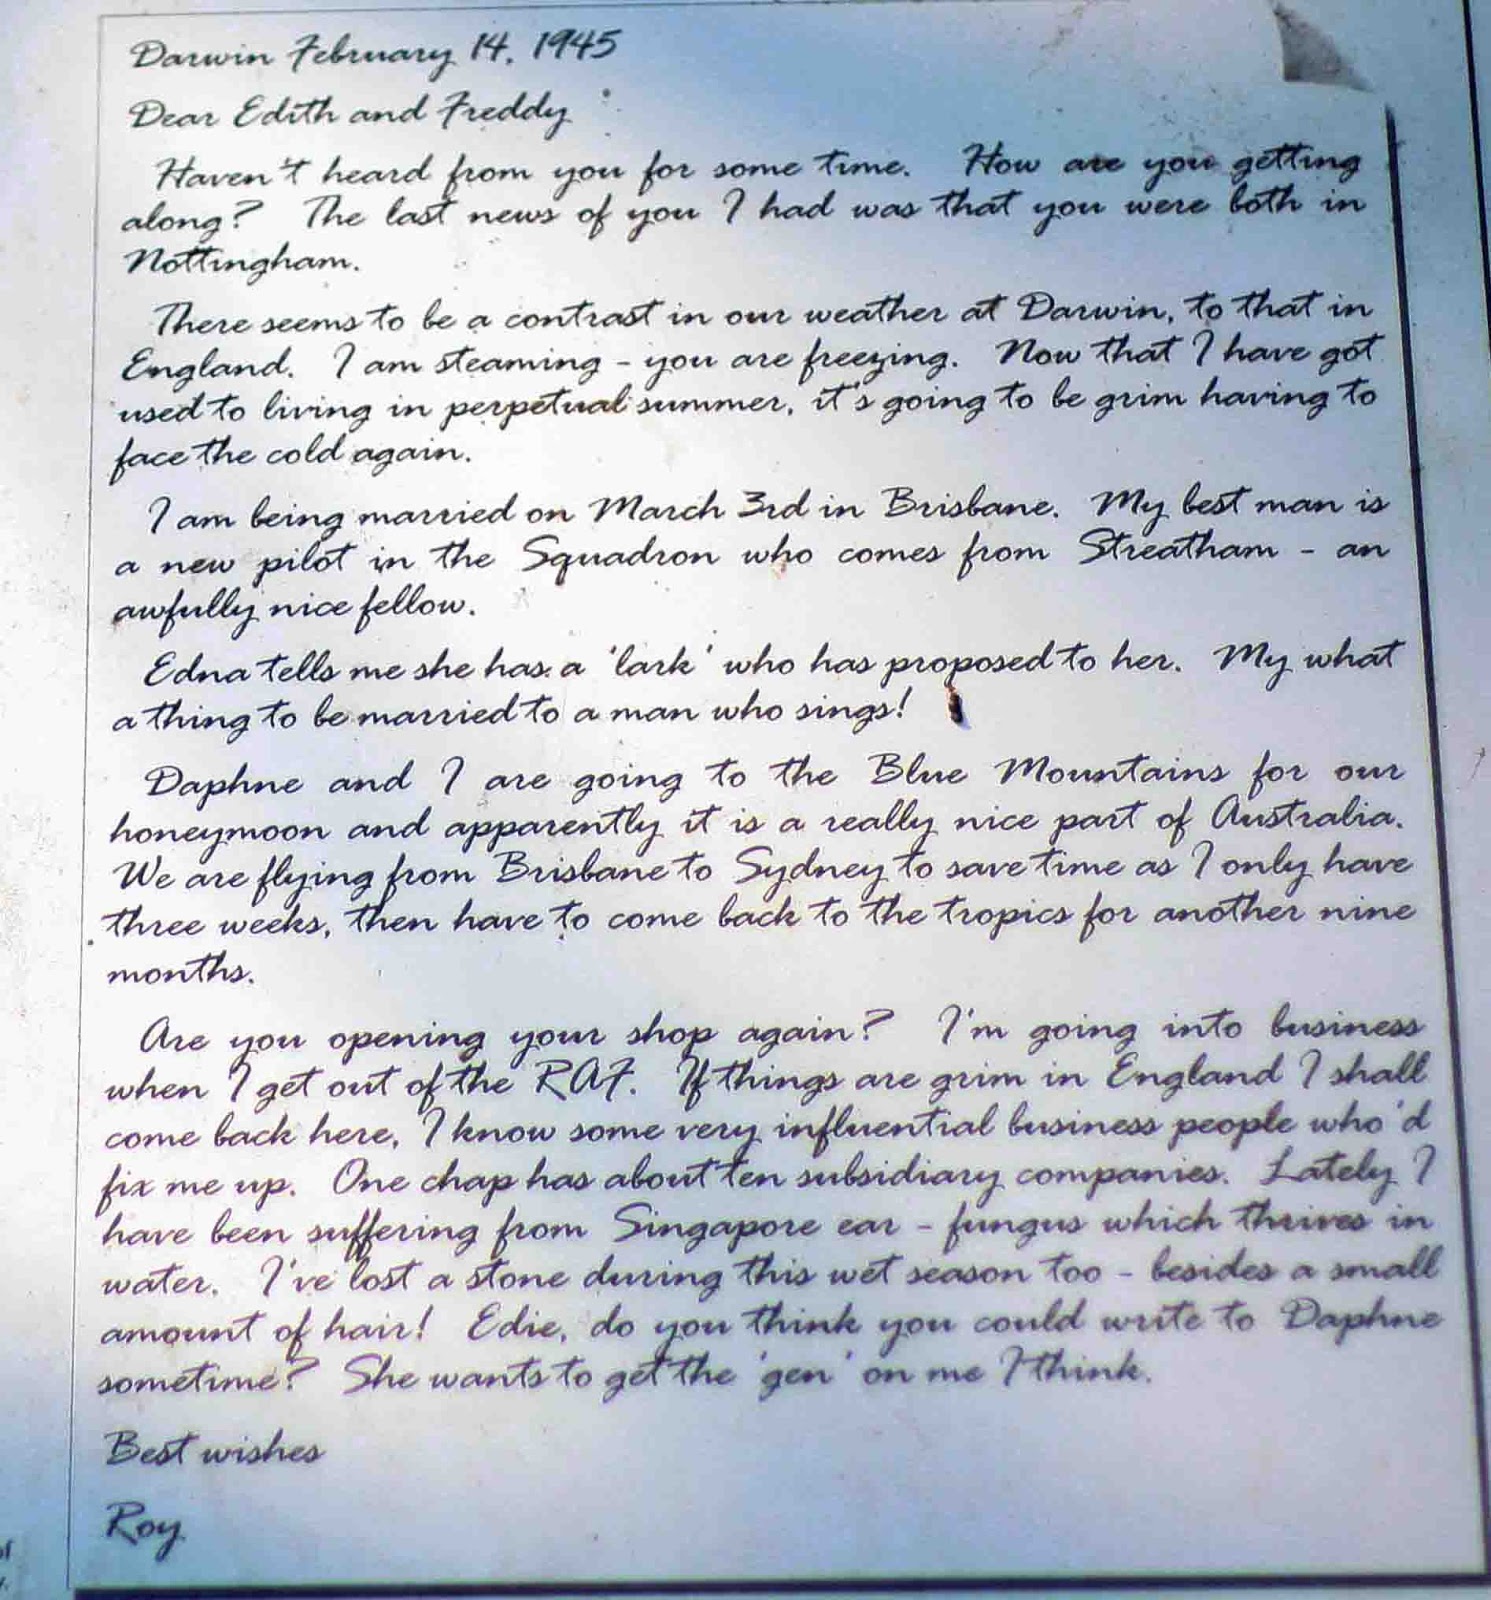 Darwin February 14, 1945
Dear Edith and Freddy
Haven't heard from you for some time. How are you getting
along? The last news of you I had was that you were both in
Nottingham.
There seems to be a contrast in our weather at Darwin, to that in
England. I am steaming - you are freezing. Now that I have got
used to living in perpetual summer, it's going to be grim having to
face the cold again.
I am being married on March 3rd in Brisbane. My best man is
a new pilot in the Squadron who comes from Streatham - an
awfully nice fellow.
Edna tells me she has a 'lark' who has proposed to her. My what
a thing to be married to a man who sings!
Daphne and I are going to the Blue Mountains for our
honeymoon and apparently it is a really nice part of Australia.
We are flying from Brisbane to Sydney to save time as I only have
three weeks, then have to come back to the tropics for another nine
months.
Are you opening your shop again? I'm going into business
when I get out of the RAF. If things are grim in England I shall
come back here, I know some very influential business people who'd
fix me up. One chap has about ten subsidiary companies. Lately I
have been suffering from Singapore ear - fungus which thrives in
water. I've lost a stone during this wet season too - besides a small
amount of hair! Edie, do you think you could write to Daphne
sometime? She wants to get the 'gen' on me I think.
Best wishes
Roy